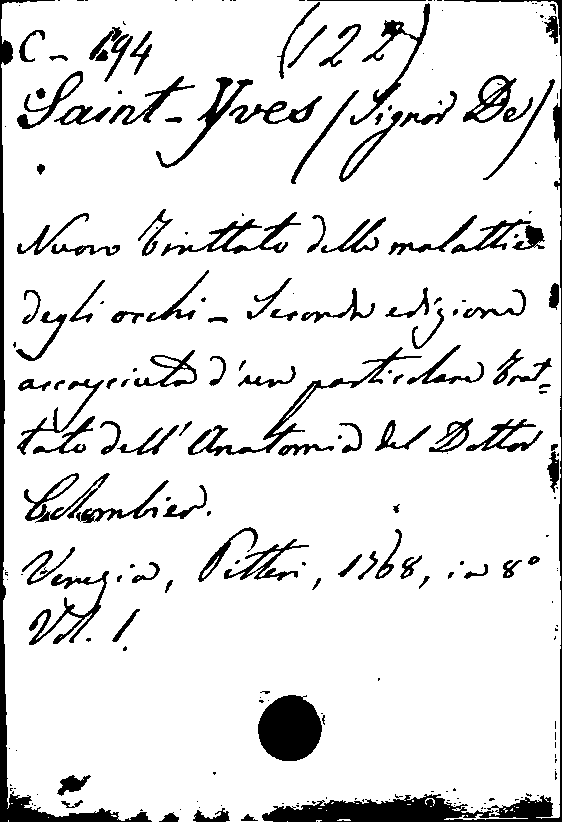 C - 194 (122)
Saint-Yves (Signor De)
Nuovo Trattato delle malattie
degli occhi - Seconda edizione
accresciuta d'un particolare Trat=
tato dell'Anatomia del Dottor
Colombier.
Venezia, Pitteri, 1768, in 8°
Vol. 1.